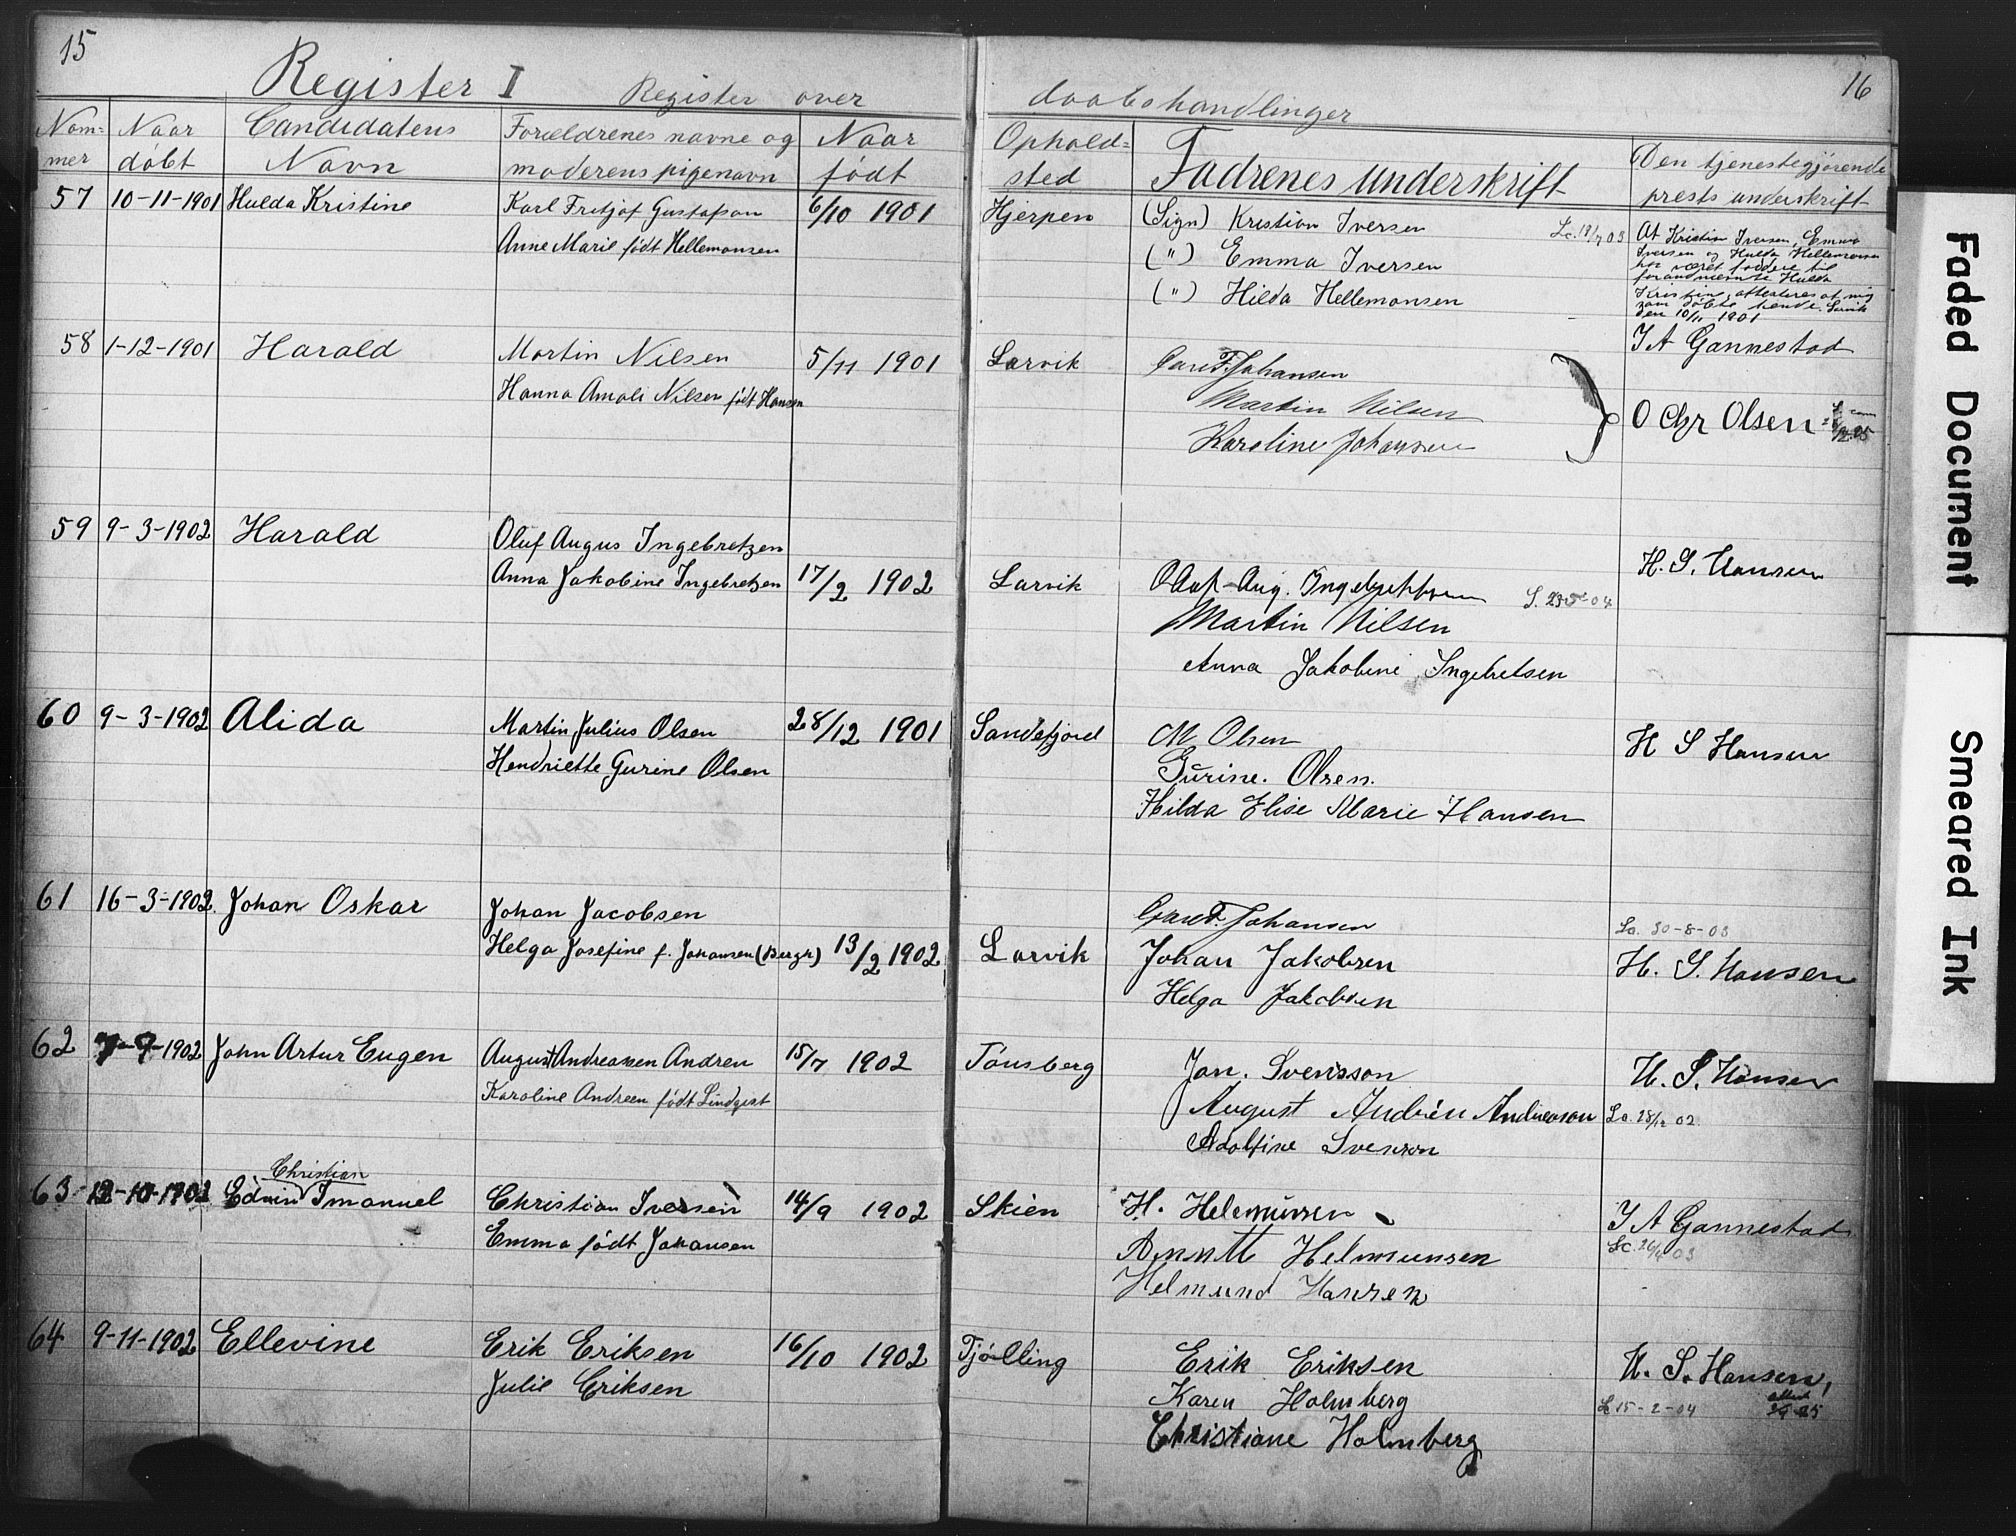 15
16
Register I
Register over daabshandlinger
Nom= mer
Naar døbt
Candidatens Navn
Forældrenes navne og moderens pigenavn
Naar født
Ophold= sted
Fadrenes underskrift
Den tjenestegjørende prests underskrift
57 10-11-1901 Hulda Kristine Karl Fritjof Gustafson 6/10 1901 Hjerpen (Sign) Kristian Iversen
Anne Marie født Hellemonsen (") Emma Iversen
(") Hilda Hellemonsen
At Kristian Iversen, Emma
Iversen og Hulda Hellemonsen
har været faddere til
forannævnte Hulda
Kristine, attesteres af mig
som døbte hende. Larvik
den 10/11 1901
I A Gannestad
58 1-12-1901 Harald Martin Nilsen 5/11 1901 Larvik Carl F. Johansen
Hanna Amali Nilsen født Hansen Martin Nilsen O Chr Olsen
Karoline Johansen
59 9-3-1902 Harald Oluf Augus Ingebretzen H. S. Hansen
Anna Jakobine Ingebretzen 17/2 1902 Larvik Olaf-Aug. Ingebrektsen
Martin Nilsen
Anna Jakobine Ingebretsen
60 9-3-1902 Alida Martin Julius Olsen 28/12 1901 Sandefjord M Olsen H S Hansen
Hendriette Gurine Olsen Gurine. Olsen.
Hilda Elise Marie Hansen
61 16-3-1902 Johan Oskar Johan Jacobsen Carl F. Johansen La. 30-8-03
Helga Josefine f. Johansen (Bergh) 13/2 1902 Larvik Johan Jakobsen H. S. Hansen
Helga Jakobsen
62 7-9-1902 John Artur Eugen August Andreasen Andren 15/7 1902 Tønsberg Jon. Svensson H. S. Hansen
Karoline Andreen født Lindqvist August Andrén Andreason La. 28/12 02
Adolfine Svenson
Christian
63 12-10-1902 Edvin Imanuel Christian Iversen 14/9 1902 Skien H. Helemunsen I A Gannestad
Emma født Johansen Annette Helmunsen
Helmund Hansen
64 9-11-1902 Ellevine Erik Eriksen 16/10 1902 Tjølling Erik Eriksen H. S. Hansen,
Julie Eriksen Karen Holmberg 15-2-04
Christiane Holmberg
Faded Document
Smeared Ink